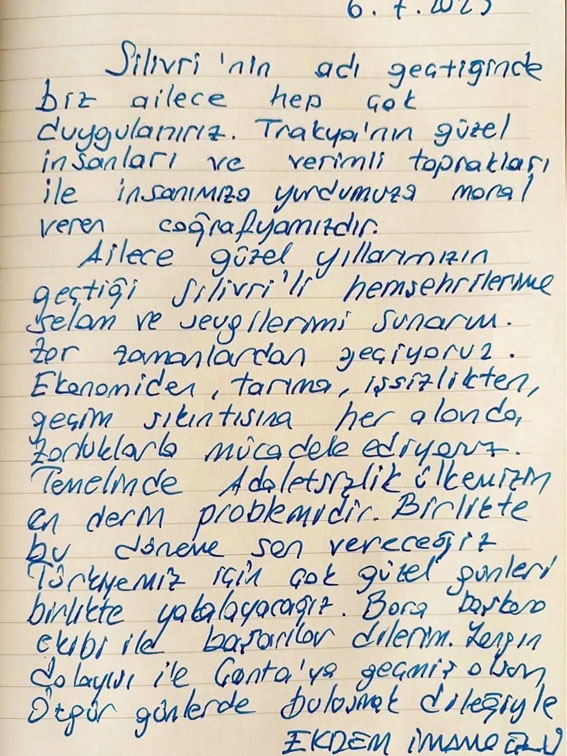 6.7.2025
Silivri'nin adı geçtiğinde
biz ailece hep çok
duygulanırız. Trakya'nın güzel
insanları ve verimli toprakları
ile insanımıza yurdumuza moral
veren coğrafyamızdır.
Ailece güzel yıllarımızın
geçtiği Silivri'li hemşehrilerime
selam ve sevgilerimi sunarım.
Zor zamanlardan geçiyoruz.
Ekonomiden, tarıma, işsizlikten,
geçim sıkıntısına her alanda,
zorluklarla mücadele ediyoruz.
Temelinde Adaletsizlik ülkemizin
en derin problemidir. Birlikte
bu döneme son vereceğiz
Türkiyemiz için çok güzel günleri
birlikte yakalayacağız. Bora başkana
ekibi ile başarılar dilerim. Yangın
dolayısı ile Çanta'ya geçmiş olsun,
Özgür günlerde buluşmak dileğiyle
EKREM İMAMOĞLU